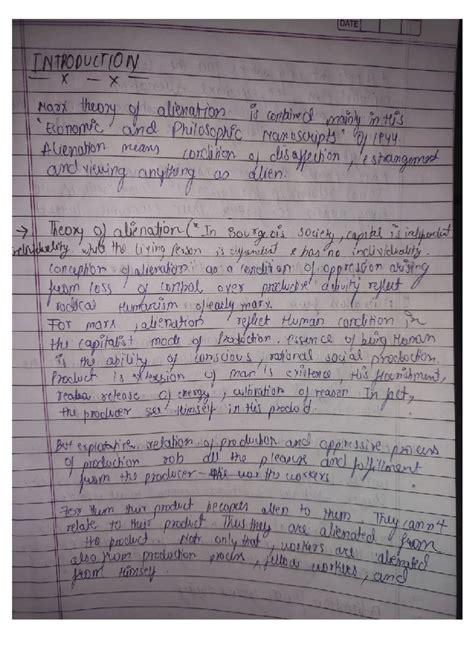 DATE
INTRODUCTION
Marx theory of alienation is contained mainly in His
"Economic and Philosophic Manuscripts" of 1944.
Alienation means condition of disaffection, estrangement
and viewing anything as alien.
→ Theory of alienation ("In Bourgeois society, capital is independent
individuality while the living person is dependent & has no individuality.
conception of alienation as a condition of oppression arising
from loss of control over productive activity reflect
radical Humanism of early marx.
For marx, alienation reflect Human condition in
the capitalist mode of Production. essence of being Human
is the ability of conscious, rational social production.
Product is of man's existence, His Nourishment,
release of energy, cultivation of reason. In fact,
the producer see Himself in His product.
But exploitative relation of production and oppressive process
of production rob all the pleasure and fulfillment
from the producer - the workers
For them their product becomes alien to them. They can't
relate to their product. Thus they are alienated from
the product. Not only that, workers are alienated
also from production process, fellow workers, and
from Himself.